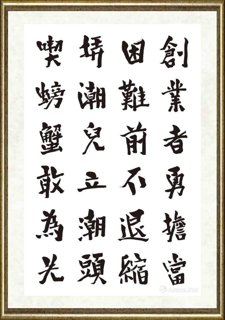 創業者勇擔當
困難前不退縮
挵潮兒立潮頭
喫螃蟹敢為先